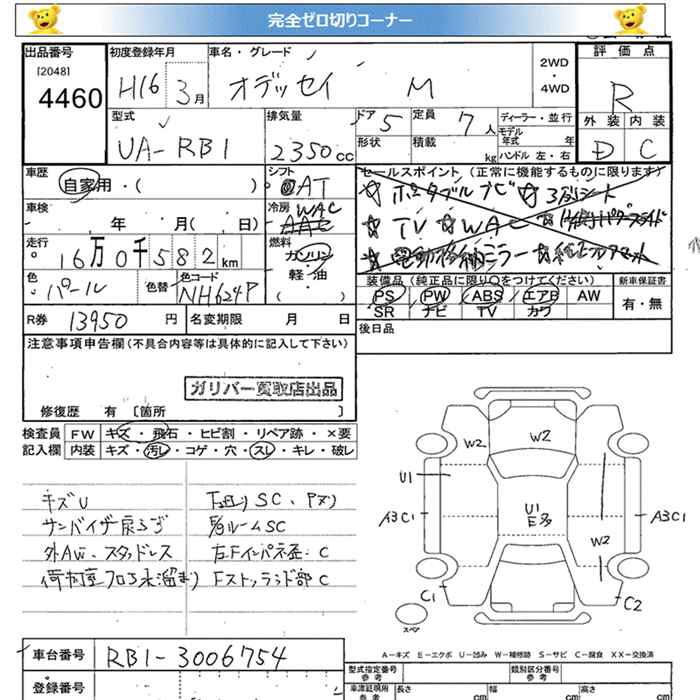 完全ゼロ切りコーナー
出品番号 初度登録年月 車名・グレード 評価点
[2048] H16 3月 オデッセイ M 2WD・4WD R
4460
型式 排気量 ドア 定員 ディーラー・並行 外装 内装
UA-RB1 2350cc 5 7人 モデル年式 年 D C
形状 積載 kg ハンドル 左・右
車歴 シフト セールスポイント(正常に機能するものに限ります)
自家用・( ) AT ☆ポータブルナビ ☆3列シート
車検 冷房 WAC AAC ☆TV ☆WAC
年 月( 日)
走行 燃料 ☆電動格納ミラー ☆純正フロアマット
16万0千582km ガソリン
軽・油
色 色替 色コード 装備品(純正品に限り○をつけてください) 新車保証書
パール NH624P ( ) PS PW ABS エアB AW 有・無
SR ナビ TV カワ
R券 13950円 名変期限 月 日 後日品
注意事項申告欄(不具合内容等は具体的に記入して下さい)
ガリバー買取店出品
修復歴 有 [箇所 ]
検査員 FW キズ・飛石・ヒビ割・リペア跡・×要
記入欄 内装 キズ・汚レ・コゲ・穴・スレ・キレ・破レ
W2 W2
U1
キズU 下廻りSC、
サンバイザ戻らず ルームSC
U1 E多
A3C1 A3C1
外AW、スタッドレス 左Fインパネ歪、C
W2
荷物室フロア水溜まり 部C
C1 C2
スペア
A-キズ E-エクボ U-凹み W-補修跡 S-サビ C-腐食 XX-交換済
車台番号 RB1-3006754
型式指定番号 参考 類別区分番号 参考
登録番号 車庫証明用 参考 長さ cm 幅 cm 高さ cm